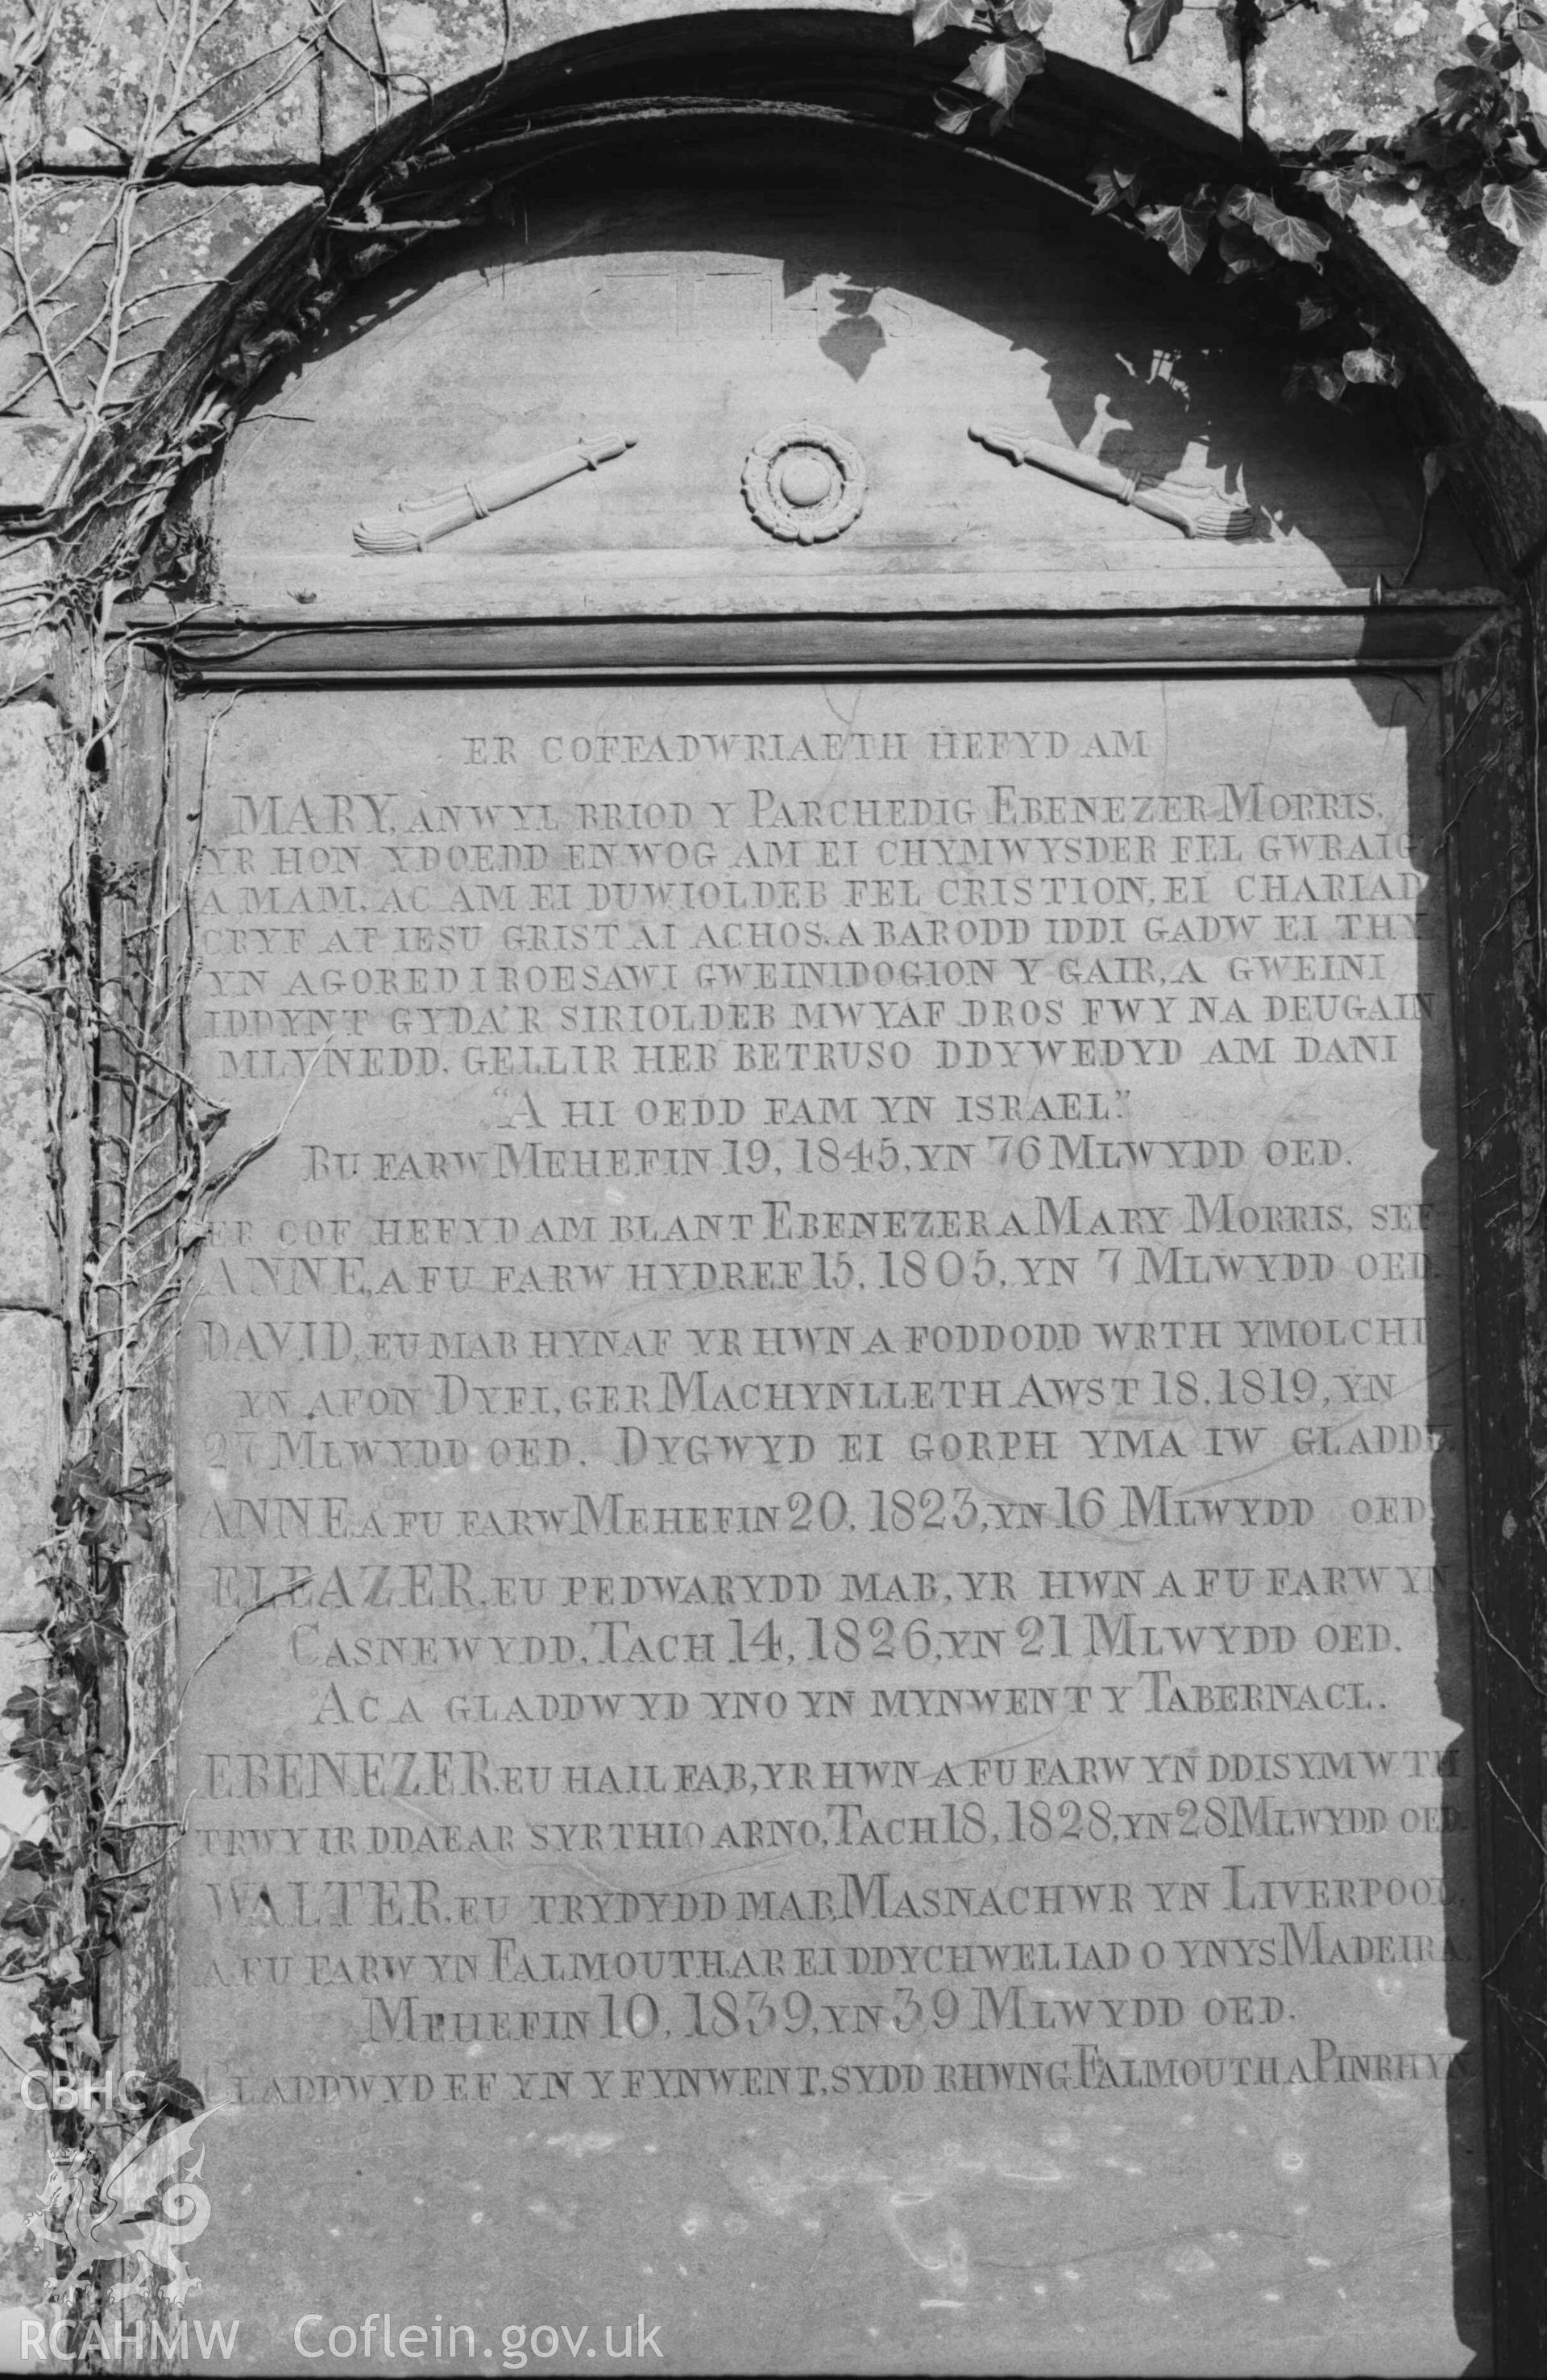 ER COFFADWRIAETH HEFYD AM
MARY, ANWYL BRIOD Y PARCHEDIG EBENEZER MORRIS,
YR HON YDOEDD ENWOG AM EI CHYMWYSDER FEL GWRAIG
A MAM, AC AM EI DUWIOLDEB FEL CRISTION, EI CHARIAD
CRYF AT IESU GRIST A'I ACHOS, A BARODD IDDI GADW EI THY
YN AGORED I ROESAWI GWEINIDOGION Y GAIR, A GWEINI
IDDYNT GYDA'R SIRIOLDEB MWYAF DROS FWY NA DEUGAIN
MLYNEDD, GELLIR HEB BETRUSO DDYWEDYD AM DANI
"A HI OEDD FAM YN ISRAEL."
BU FARW MEHEFIN 19, 1845, YN 76 MLWYDD OED.
ER COF HEFYD AM BLANT EBENEZER A MARY MORRIS, SEF
ANNE, A FU FARW HYDREF 15, 1805, YN 7 MLWYDD OED.
DAVID, EU MAB HYNAF YR HWN A FODDODD WRTH YMOLCHI
YN AFON DYFI, GER MACHYNLLETH AWST 18, 1819, YN
27 MLWYDD OED. DYGWYD EI GORPH YMA IW GLADDU.
ANNE A FU FARW MEHEFIN 20, 1823, YN 16 MLWYDD OED.
ELEAZER, EU PEDWARYDD MAB, YR HWN A FU FARW YN
CASNEWYDD, TACH 14, 1826, YN 21 MLWYDD OED.
AC A GLADDWYD YNO YN MYNWENT Y TABERNACL.
EBENEZER, EU HAIL FAB, YR HWN A FU FARW YN DDISYMWTH
TRWY I'R DDAEAR SYRTHIO ARNO, TACH 18, 1828, YN 28 MLWYDD OED.
WALTER, EU TRYDYDD MAB, MASNACHWR YN LIVERPOOL,
A FU FARW YN FALMOUTH, AR EI DDYCHWELIAD O YNYS MADEIRA,
MEHEFIN 10, 1839, YN 39 MLWYDD OED.
GLADDWYD EF YN Y FYNWENT, SYDD RHWNG FALMOUTH A PINRHYN
CBHC
RCAHMW
Coflein.gov.uk